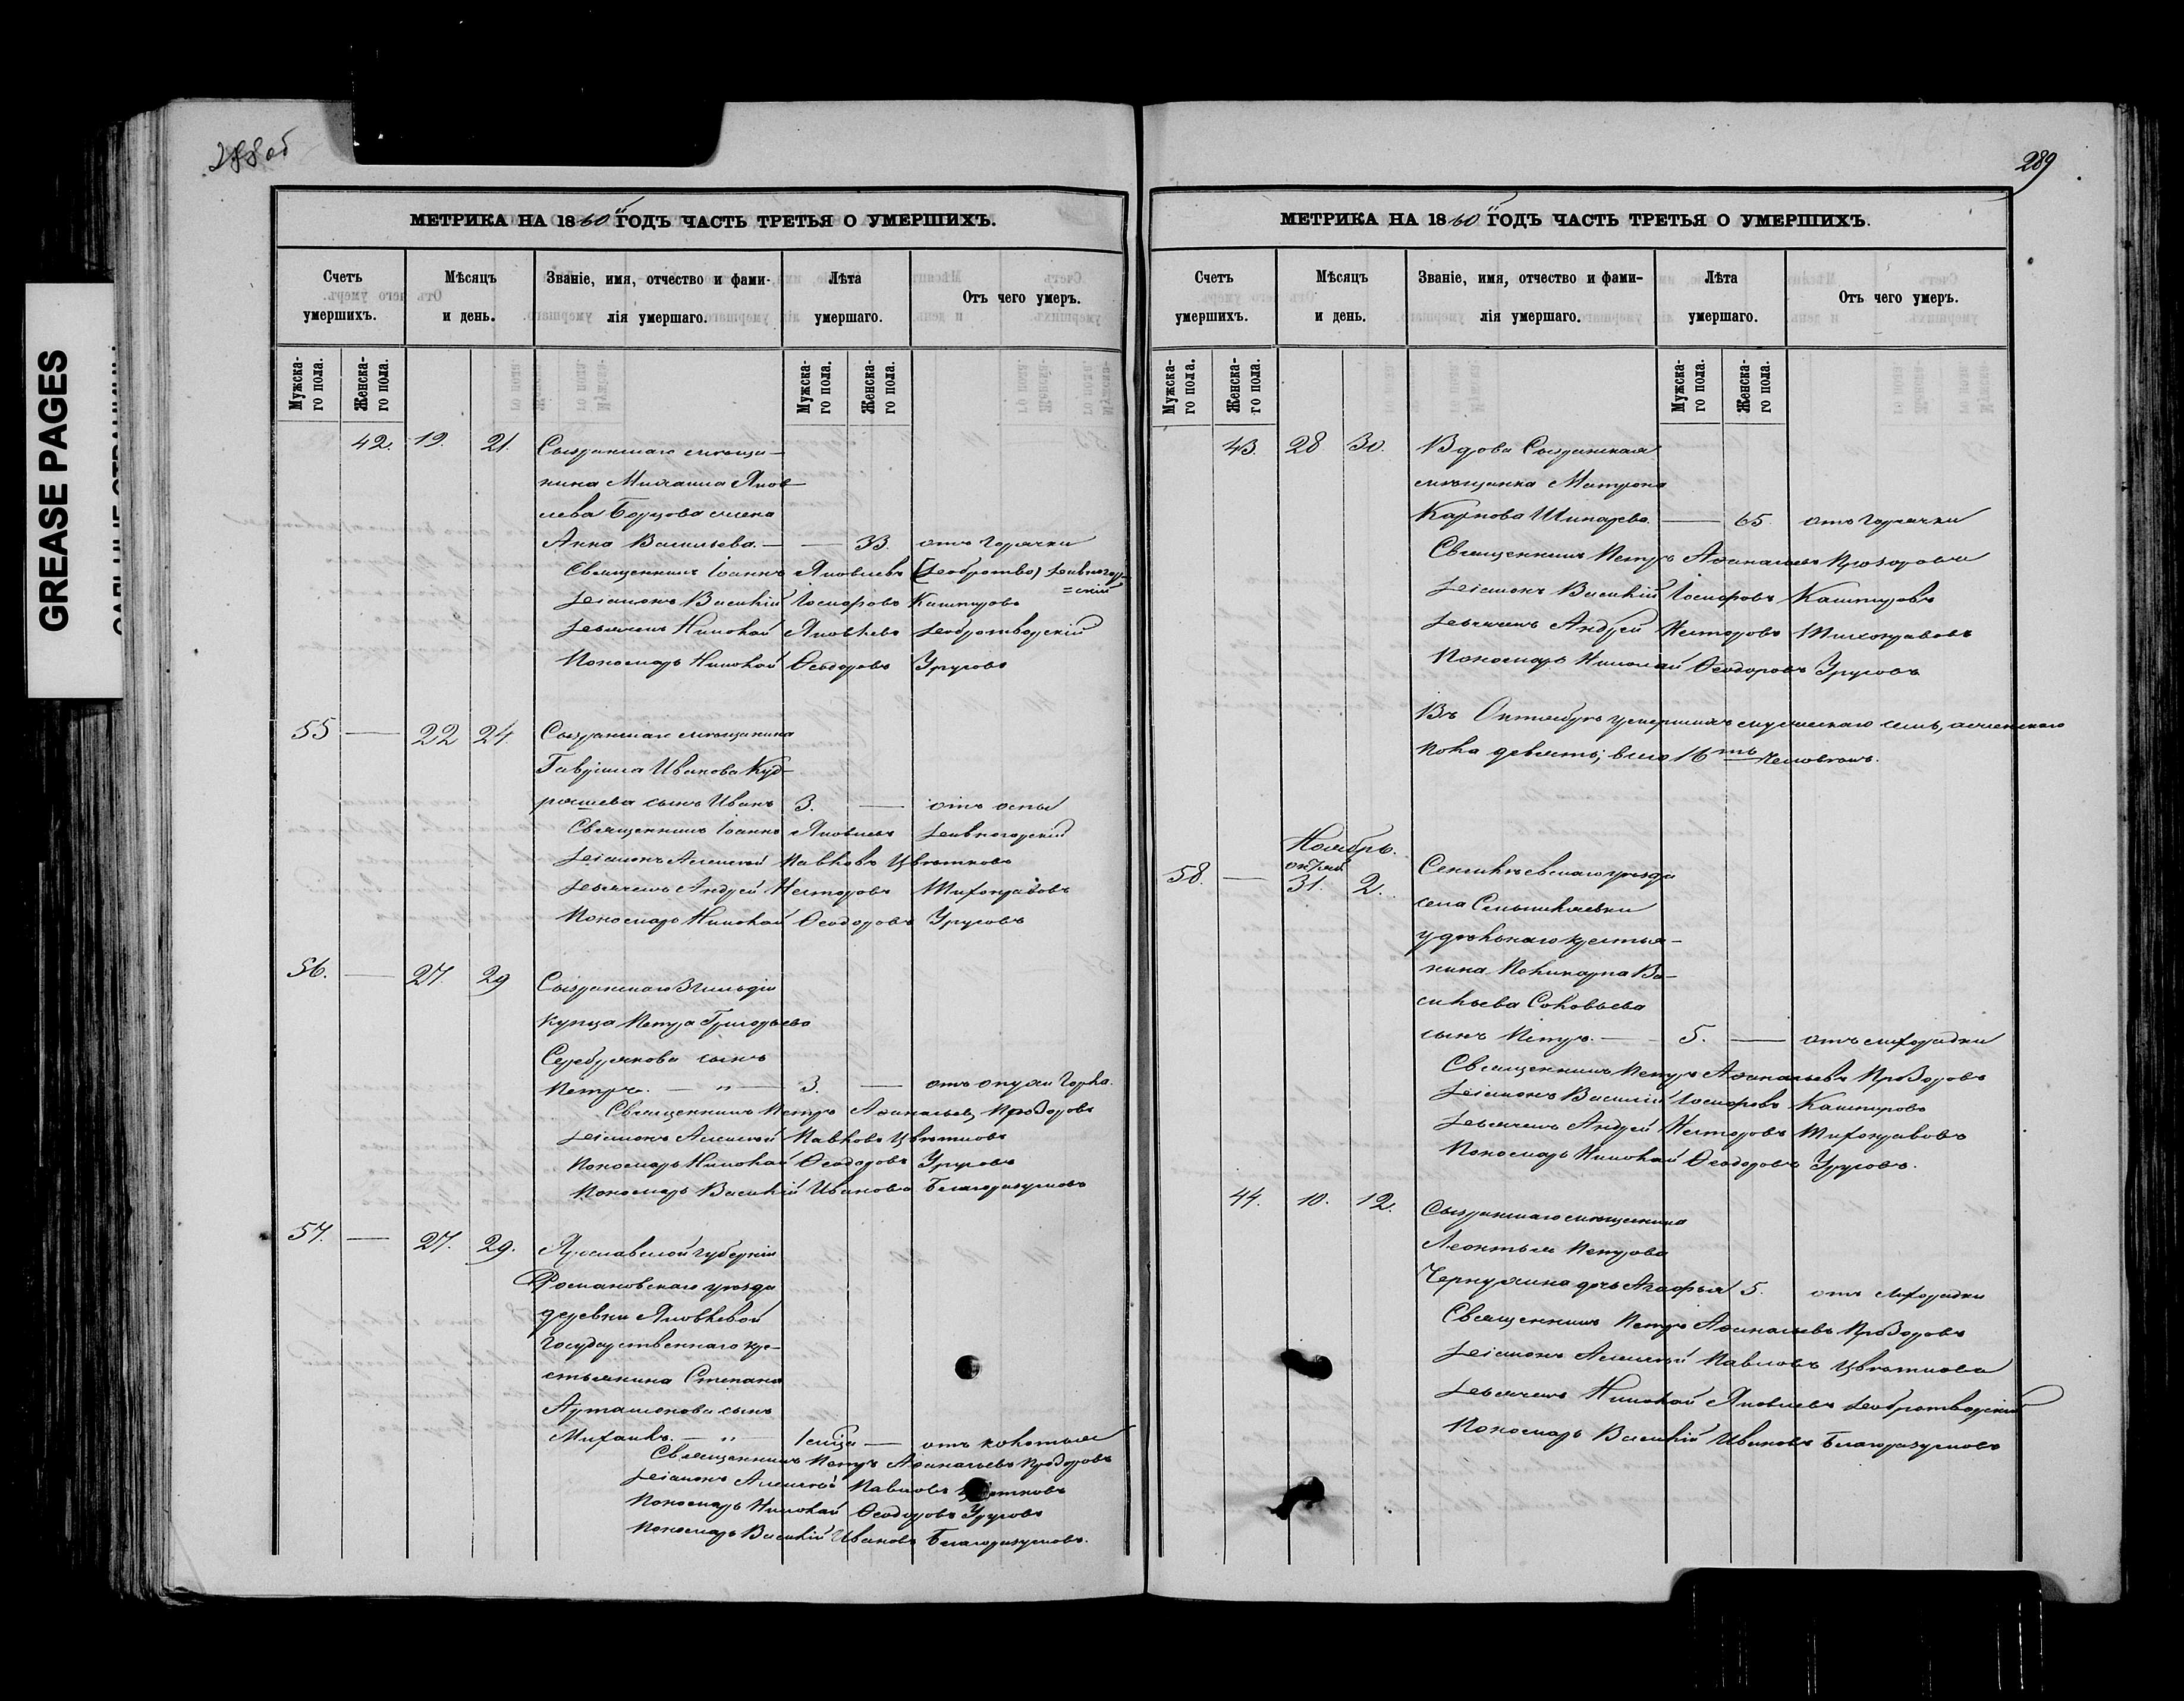 GREASE PAGES
288об
МЕТРИКА НА 1860й ГОДЪ ЧАСТЬ ТРЕТЬЯ О УМЕРШИХЪ.
Счетъ умершихъ.
Мѣсяцъ и день.
Званіе, имя, отчество и фами-
лія умершаго.
Лѣта умершаго.
Отъ чего умеръ.
Мужска-
го пола.
Женска-
го пола.
Мужска-
го пола.
Женска-
го пола.
42. 19. 21. Сызранскаго мѣща-
нина Михаила Яков-
лева Борцова жена
Анна Васильева. — — 33. отъ горячки
Священникъ Іоаннъ Яковлевъ (Добротво) Дивногор-
=скій
Діаконъ Василій Іосифовъ Каштровъ
Дьячекъ Николай Яковлевъ Добротворскій
Пономарь Николай Ѳеодоровъ Урусовъ
55 — 22 24. Сызранскаго мѣщанина
Гавріила Иванова Куд-
ряшева сынъ Иванъ 3. — отъ оспы
Священникъ Іоаннъ Яковлевъ Дивногорскій
Діаконъ Алексѣй Павловъ Цвѣтковъ
Дьячекъ Андрей Несторовъ Тихонравовъ
Пономарь Николай Ѳеодоровъ Урусовъ
56. — 27. 29 Сызранскаго 3 гильдіи
купца Петра Григорьева
Серебрякова сынъ
Петръ. — " — 3. — отъ опухли горла.
Священникъ Петръ Аѳанасьевъ Прозоровъ
Діаконъ Алексѣй Павловъ Цвѣтковъ
Пономарь Николай Ѳеодоровъ Урусовъ
Пономарь Василій Ивановъ Благоразумовъ
57. — 27. 29. Ярославской губерніи
Романовскаго уѣзда
деревни Яковлевой
государственнаго кре-
стьянина Степана
Артамонова сынъ
Михаилъ. — " — 1 мѣся — отъ колотья
Священникъ Петръ Аѳанасьевъ Прозоровъ
Діаконъ Алексѣй Павловъ Цвѣтковъ
Пономарь Николай Ѳеодоровъ Урусовъ
Пономарь Василій Ивановъ Благоразумовъ.
289
МЕТРИКА НА 1860й ГОДЪ ЧАСТЬ ТРЕТЬЯ О УМЕРШИХЪ.
Счетъ умершихъ.
Мѣсяцъ и день.
Званіе, имя, отчество и фами-
лія умершаго.
Лѣта умершаго.
Отъ чего умеръ.
Мужска-
го пола.
Женска-
го пола.
Мужска-
го пола.
Женска-
го пола.
43. 28 30. Вдова Сызранская
мѣщанка Матрона
Карпова — 65. отъ горячки
Священникъ Петръ Аѳанасьевъ Прозоровъ
Діаконъ Василій Іосифовъ Каштровъ
Дьячекъ Андрей Несторовъ Тихонравовъ
Пономарь Николай Ѳеодоровъ Урусовъ
Въ Октябрѣ умершихъ мужескаго семь, женскаго
пола девять; всего 16ть человѣкъ.
Ноябрь.
58. — октяб 31. 2. Сенгилѣевскаго уѣзда
села
удѣльнаго крестья-
нина Поликарпа Ва-
сильева Соловьева
сынъ Петръ. — 5. — отъ лихорадки
Священникъ Петръ Аѳанасьевъ Прозоровъ
Діаконъ Василій Іосифовъ Каштровъ
Дьячекъ Андрей Несторовъ Тихонравовъ
Пономарь Николай Ѳеодоровъ Урусовъ.
44. 10. 12. Сызранскаго мѣщанина
Леонтья Петрова
дочь Агафья 5. отъ лихорадки
Священникъ Петръ Аѳанасьевъ Прозоровъ
Діаконъ Алексѣй Павловъ Цвѣтковъ
Дьячекъ Николай Яковлевъ Добротворскій
Пономарь Василій Ивановъ Благоразумовъ